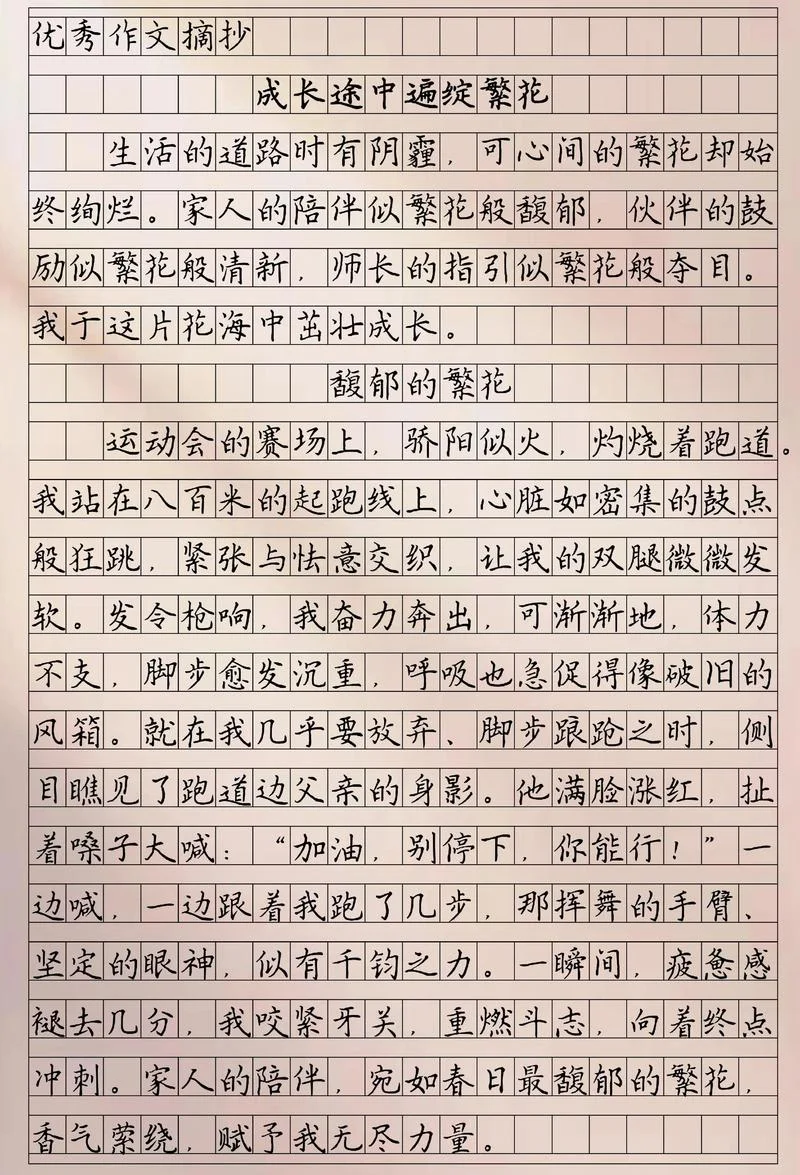 优秀作文摘抄
成长途中遍绽繁花
生活的道路时有阴霾，可心间的繁花却始
终绚烂。家人的陪伴似繁花般馥郁，伙伴的鼓
励似繁花般清新，师长的指引似繁花般夺目。
我于这片花海中茁壮成长。
馥郁的繁花
运动会的赛场上，骄阳似火，灼烧着跑道。
我站在八百米的起跑线上，心脏如密集的鼓点
般狂跳，紧张与怯意交织，让我的双腿微微发
软。发令枪响，我奋力奔出，可渐渐地，体力
不支，脚步愈发沉重，呼吸也急促得像破旧的
风箱。就在我几乎要放弃、脚步踉跄之时，侧
目瞧见了跑道边父亲的身影。他满脸涨红，扯
着嗓子大喊：“加油，别停下，你能行！”一
边喊，一边跟着我跑了几步，那挥舞的手臂、
坚定的眼神，似有千钧之力。一瞬间，疲惫感
褪去几分，我咬紧牙关，重燃斗志，向着终点
冲刺。家人的陪伴，宛如春日最馥郁的繁花，
香气萦绕，赋予我无尽力量。